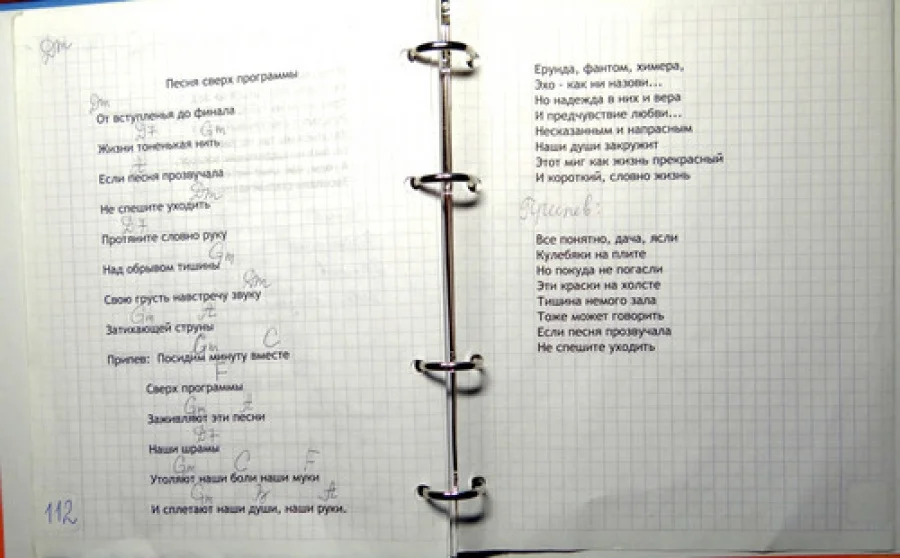 Dm
Песня сверх программы
Dm
От вступленья до финала
D7 Gm
Жизни тоненькая нить
A
Если песня прозвучала
Dm
Не спешите уходить
D7
Протяните словно руку
Gm
Над обрывом тишины
Dm
Свою грусть навстречу звуку
Gm A
Затихающей струны
Gm C
Припев: Посидим минуту вместе
F
Сверх программы
Gm A
Заживляют эти песни
D7
Наши шрамы
Gm C F
Утоляют наши боли наши муки
Gm A
И сплетают наши души, наши руки.
112
Ерунда, фантом, химера,
Эхо - как ни назови...
Но надежда в них и вера
И предчувствие любви...
Несказанным и напрасным
Наши души закружит
Этот миг как жизнь прекрасный
И короткий, словно жизнь
Припев:
Все понятно, дача, ясли
Кулебяки на плите
Но покуда не погасли
Эти краски на холсте
Тишина немого зала
Тоже может говорить
Если песня прозвучала
Не спешите уходить